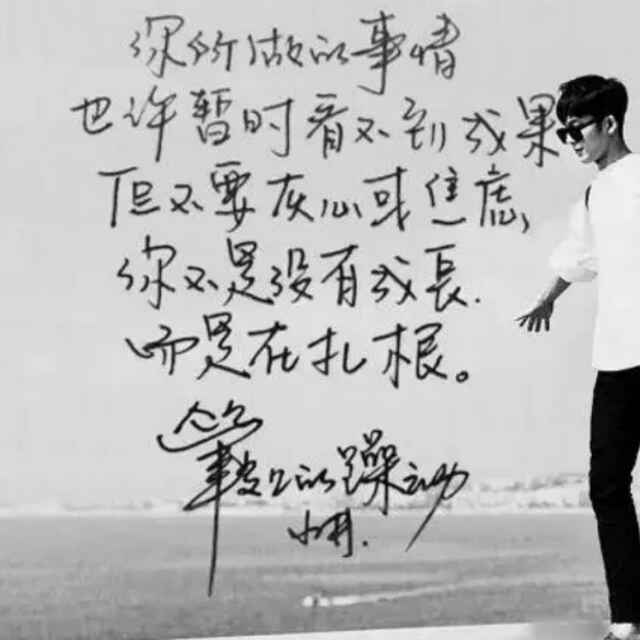 你所做的事情
也许暂时看不到成果
但不要灰心或焦虑,
你不是没有成長.
而是在扎根。
的躁动